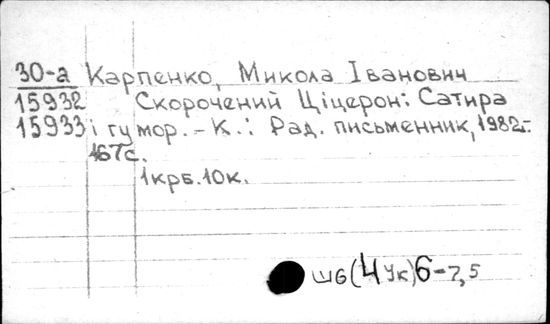 30-а Карпенко, Микола Іванович
15932 Скорочений Ціцерон: Сатира
15933 і гумор. - К.: Рад. письменник, 1982.-
167с.
1крб.10к.
Ш6(4Ук)6-7,5